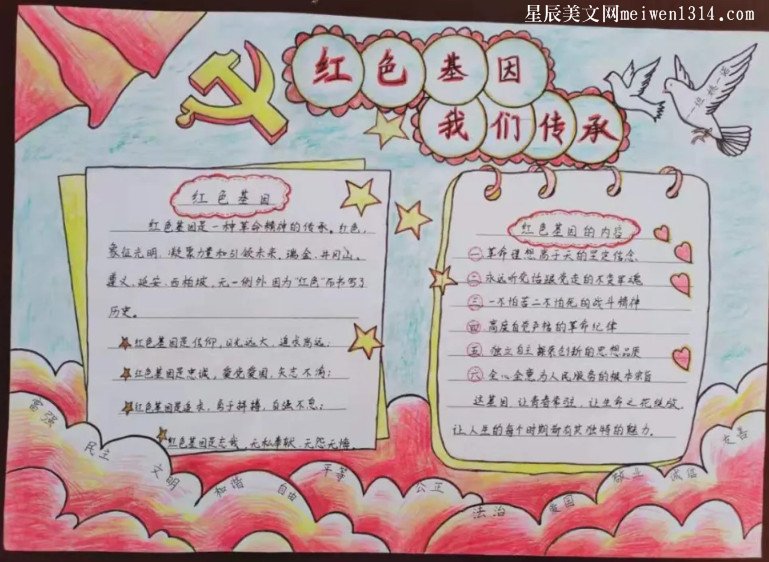 星辰美文网meiwen1314.com
红色基因
我们传承
红色基因
红色基因是一种革命精神的传承。红色,
象征光明,凝聚力量和引领未来,瑞金、井冈山、
遵义、延安、西柏坡,无一例外因为“红色”而书写了
历史。
红色基因是信仰,目光远大,追求高远;
红色基因是忠诚,爱党爱国,矢志不渝;
红色基因是追求,勇于拼搏,自强不息;
红色基因是忘我,无私奉献、无怨无悔。
红色基因的内容
一 革命理想高于天的坚定信念
二 永远听党话跟党走的不变军魂
三 一不怕苦二不怕死的战斗精神
四 高度自觉严格的革命纪律
五 独立自主探索创新的思想品质
六 全心全意为人民服务的根本宗旨
这基因,让青春牵引,让生命之花绽放,
让人生的每个时期都有其独特的魅力。
富强
民主
文明
和谐
自由
平等
公正
法治
爱国
敬业
诚信
友善